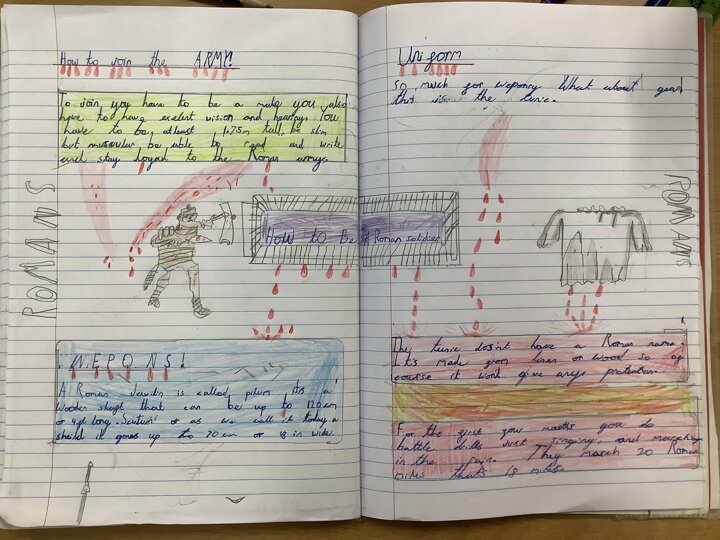 How to Join the ARMY!
To Join you have to be a male you also
have to have exelent vision and hearing. You
have to be atleast 1.75m tall, be slim
but muscular be able to read and write
and stay loyal to the Roman army.
ROMANS
How to Be A Roman soldier
WEPONS!
A Roman Javelin is called pilum its a
wooden shaft that can be up to 120 cm
or 4 ft long. Scutum or as we call it today a
sheild it goes up to 70 cm or 18 in wide.
Uniform
So, much for weponry What about gear
that is the tunic.
ROMANS
The tunic doesn't have a Roman name.
It's made from linen or wool so of
course it wont give any protection.
For the first four months you do
battle drills Just singing, and marching
in the rain. They march 20 Roman
miles thats 18 miles.